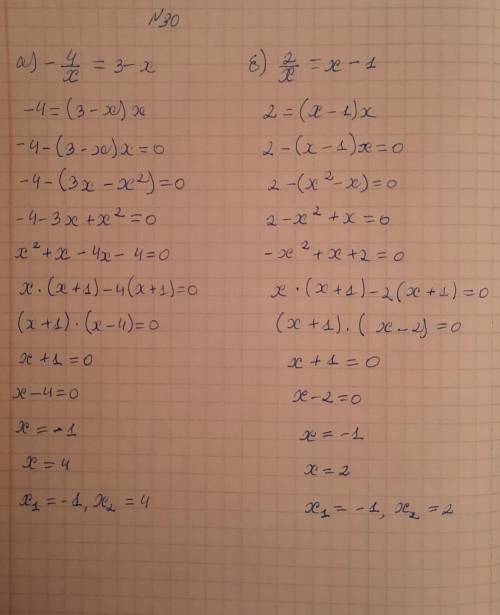 №30
а) - 4/x = 3 - x
-4 = (3 - x) x
-4 - (3 - x) x = 0
-4 - (3x - x²) = 0
-4 - 3x + x² = 0
x² + x - 4x - 4 = 0
x · (x + 1) - 4 (x + 1) = 0
(x + 1) · (x - 4) = 0
x + 1 = 0
x - 4 = 0
x = -1
x = 4
x₁ = -1, x₂ = 4
б) 2/x = x - 1
2 = (x - 1) x
2 - (x - 1) x = 0
2 - (x² - x) = 0
2 - x² + x = 0
-x² + x + 2 = 0
x · (x + 1) - 2 (x + 1) = 0
(x + 1) · (x - 2) = 0
x + 1 = 0
x - 2 = 0
x = -1
x = 2
x₁ = -1, x₂ = 2